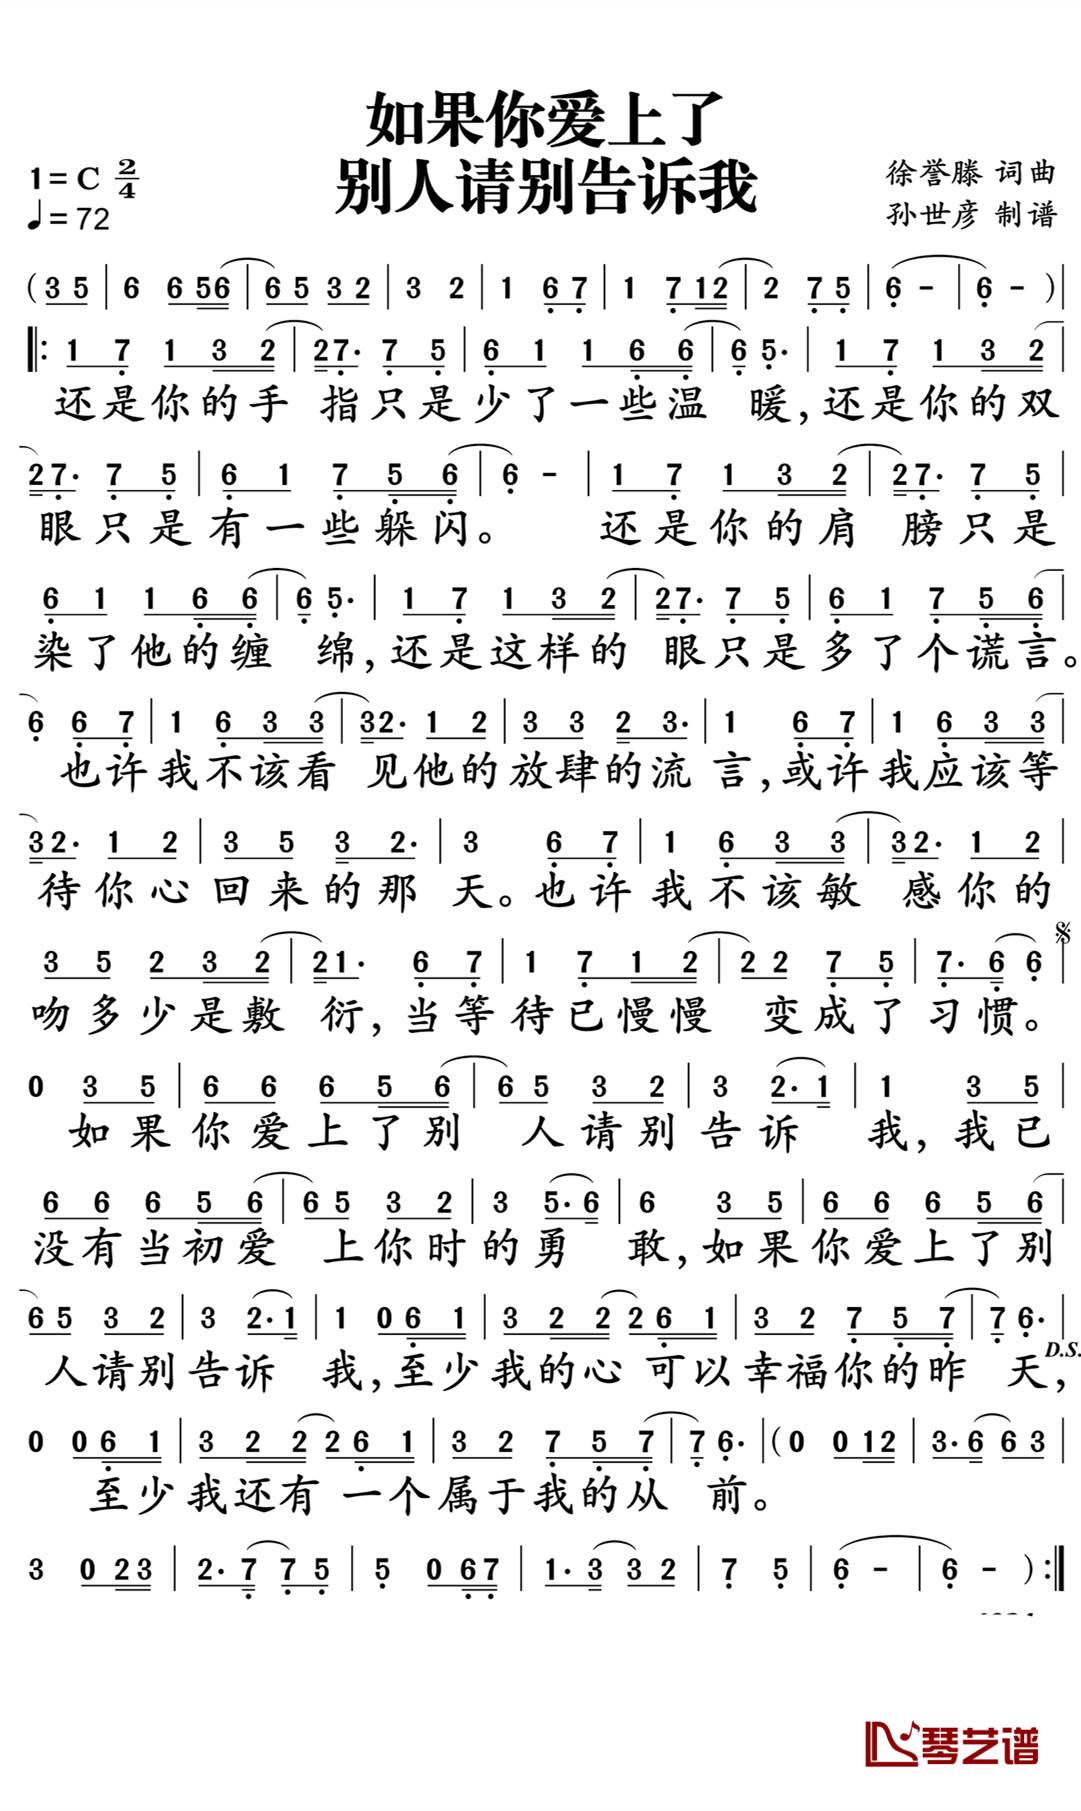 如果你爱上了
别人请别告诉我
1= C 2/4
♩= 72
徐誉滕 词曲
孙世彦 制谱
( 3 5 | 6 6 5 6 | 6 5 3 2 | 3 2 | 1 6 7 | 1 7 1 2 | 2 7 5 | 6 - | 6 - ) |
‖: 1 7 1 3 2 | 2 7· 7 5 | 6 1 1 6 6 | 6 5· | 1 7 1 3 2 |
还是你的手 指只是少了一些温 暖,还是你的双
2 7· 7 5 | 6 1 7 5 6 | 6 - | 1 7 1 3 2 | 2 7· 7 5 |
眼只是有一些躲闪。 还是你的肩 膀只是
6 1 1 6 6 | 6 5· | 1 7 1 3 2 | 2 7· 7 5 | 6 1 7 5 6 |
染了他的缠 绵,还是这样的 眼只是多了个谎言。
6 6 7 | 1 6 3 3 | 3 2· 1 2 | 3 3 2 3· | 1 6 7 | 1 6 3 3 |
也许我不该看 见他的放肆的流 言,或许我应该等
3 2· 1 2 | 3 5 3 2· | 3 6 7 | 1 6 3 3 | 3 2· 1 2 |
待你心回来的那 天。也许我不该敏 感你的
3 5 2 3 2 | 2 1· 6 7 | 1 7 1 2 | 2 2 7 5 | 7· 6 6 | 𝄋
吻多少是敷 衍,当等待已慢慢 变成了习惯。
0 3 5 | 6 6 6 5 6 | 6 5 3 2 | 3 2· 1 | 1 3 5 |
如果你爱上了别 人请别告诉 我,我已
6 6 6 5 6 | 6 5 3 2 | 3 5· 6 | 6 3 5 | 6 6 6 5 6 |
没有当初爱 上你时的勇 敢,如果你爱上了别
6 5 3 2 | 3 2· 1 | 1 0 6 1 | 3 2 2 2 6 1 | 3 2 7 5 7 | 7 6· |
D.S.
人请别告诉 我,至少我的心 可以幸福你的昨 天,
0 0 6 1 | 3 2 2 2 6 1 | 3 2 7 5 7 | 7 6· | ( 0 0 1 2 | 3· 6 6 3 |
至少我还有 一个属于我的从 前。
3 0 2 3 | 2· 7 7 5 | 5 0 6 7 | 1· 3 3 2 | 7 5 | 6 - | 6 - ) :‖
琴艺谱